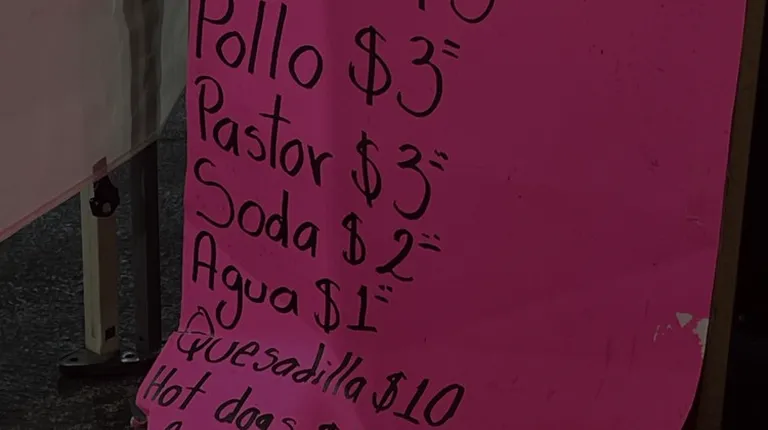 Pollo $3=
Pastor $3=
Soda $2=
Agua $1=
Quesadilla $10
Hot dogs